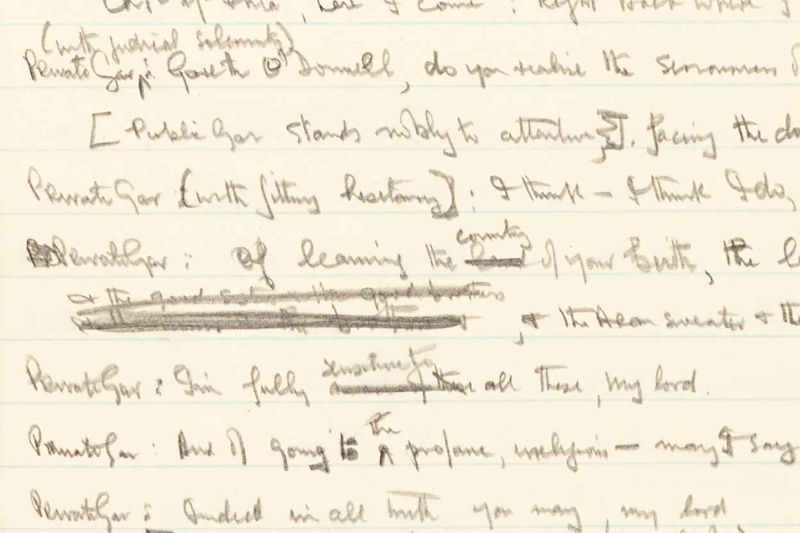 here I come! Right back where I
(with judicial solemnity)
Private Gar: Gareth O'Donnell, do you realise the seriousness
[Public Gar stands nobly to attention], facing the
Private Gar [with fitting hesitancy]: I think – I think I do,
Private Gar: Of leaving the country of your birth, the
& the Aran sweater & the
Private Gar: I'm fully sensitive to all these, my lord.
Private Gar: And of going to the profane, irreligious — may I say
Private Gar: Indeed in all truth you may, my lord